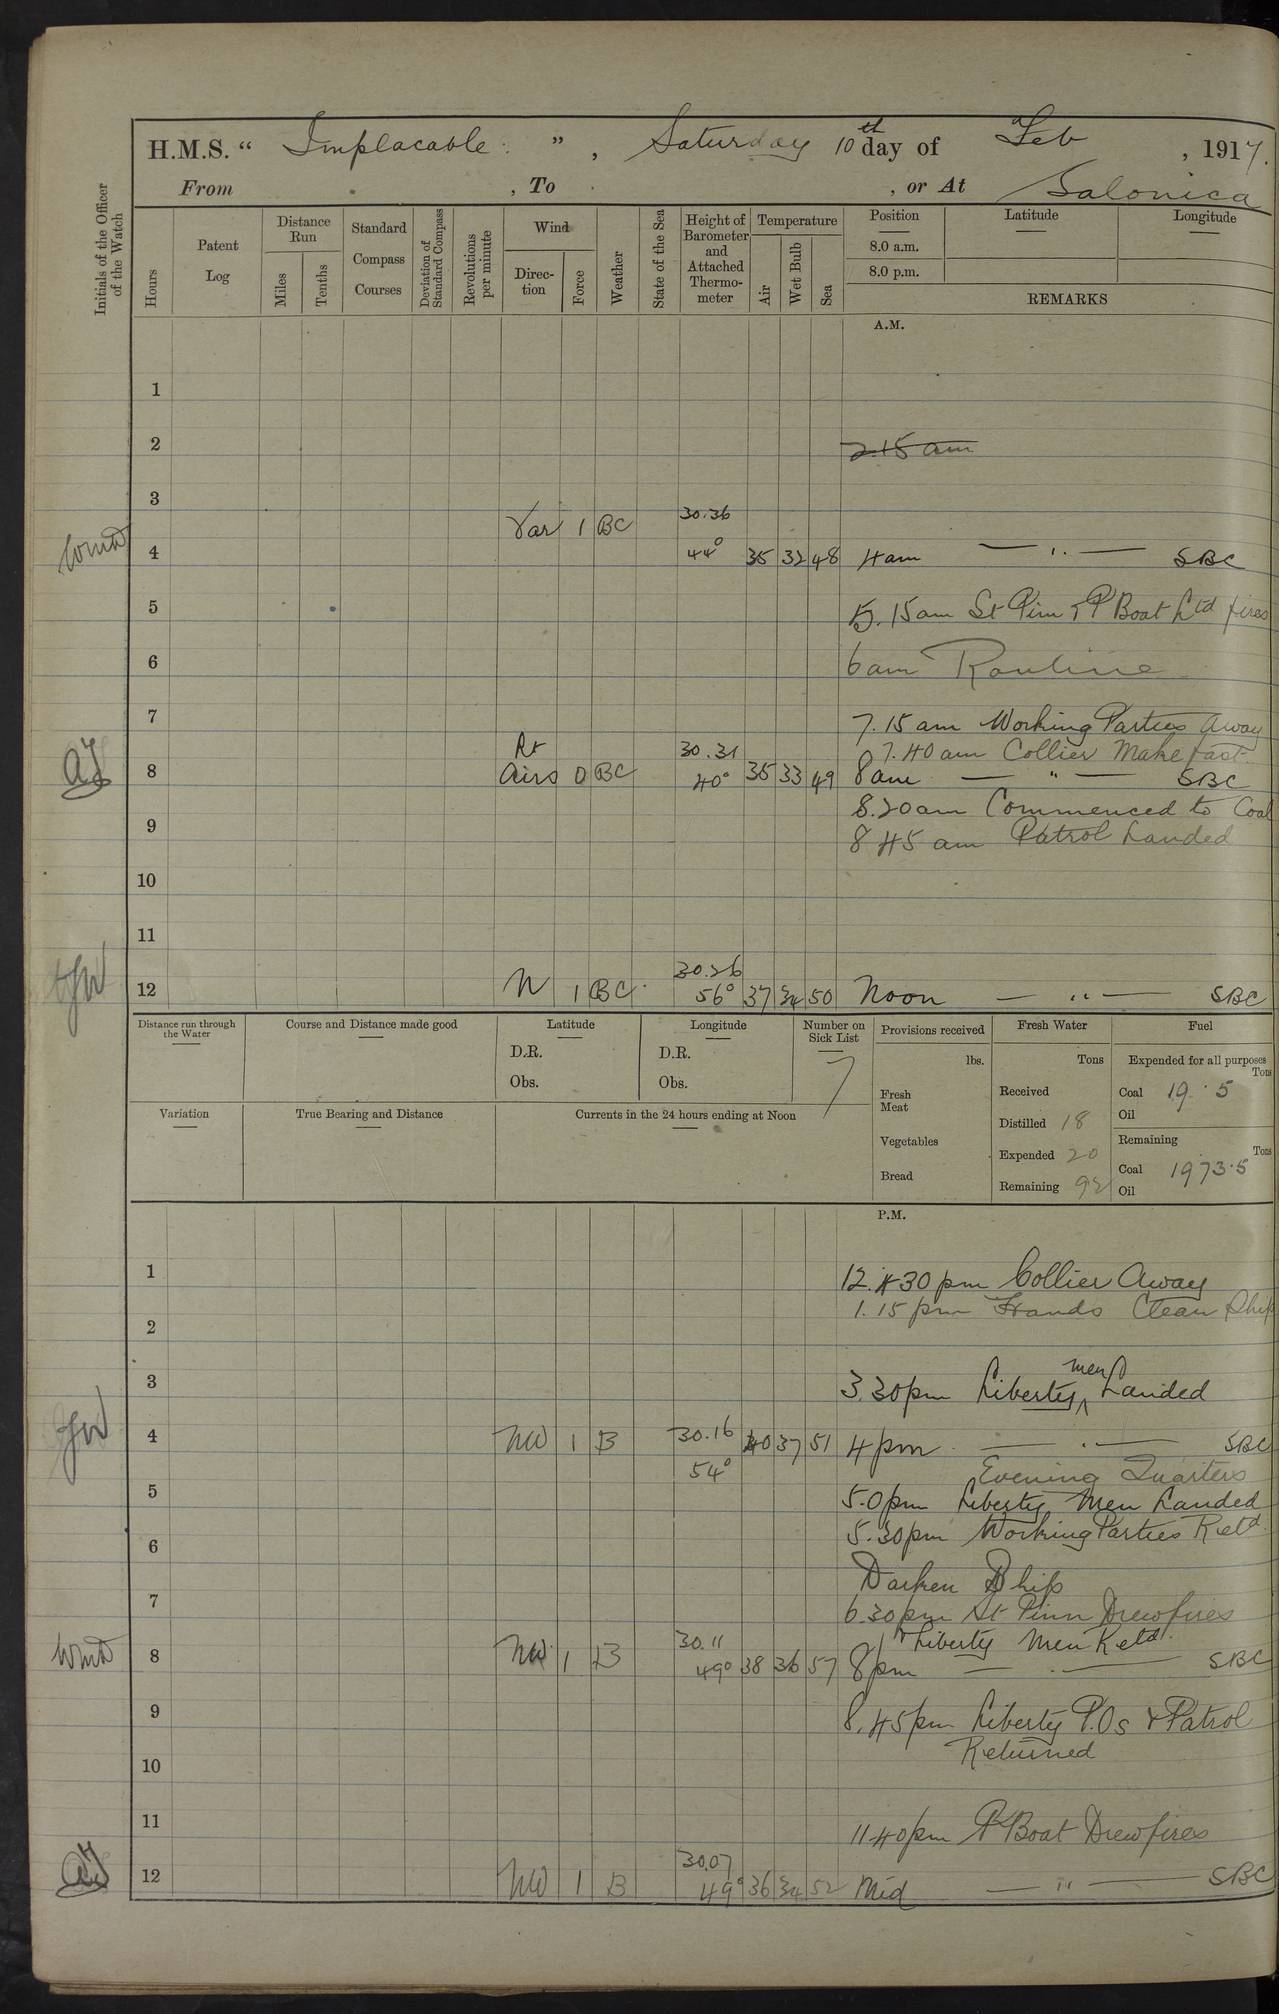 H.M.S. “ Implacable ” , Saturday 10th day of Feb , 1917.
From , To , or At Salonica
Initials of the Officer of the Watch
Hours
Patent Log
Distance Run
Miles
Tenths
Standard Compass Courses
Deviation of Standard Compass
Revolutions per minute
Wind
Direction
Force
Weather
State of the Sea
Height of Barometer and Attached Thermometer
Temperature
Air
Wet Bulb
Sea
Position
Latitude
Longitude
8.0 a.m.
8.0 p.m.
REMARKS
A.M.
1
2 2.15 am
3
Var 1 BC 30.36
4 44° 35 32 48 4am — ·· — SBC
5 5.15am St Pinn & P Boat Ltd fires
6 6am Routine
7 7.15 am Working Parties away
7.40 am Collier Make fast
8 Lt Airs 0 BC 30.31 40° 35 33 49 8am — " — SBC
8.20am Commenced to Coal
9 8 45 am Patrol Landed
10
11
12 N 1 BC 30.26 56° 37 34 50 Noon — " — SBC
Distance run through the Water
Course and Distance made good
Latitude
D.R.
Obs.
Longitude
D.R.
Obs.
Number on Sick List
7
Provisions received
lbs.
Fresh Meat
Vegetables
Bread
Fresh Water
Tons
Received
Distilled 18
Expended 20
Remaining 92
Fuel
Expended for all purposes
Tons
Coal 19.5
Oil
Remaining
Tons
Coal 1973.5
Oil
Variation
True Bearing and Distance
Currents in the 24 hours ending at Noon
P.M.
1 12.30 pm Collier Away
1.15 pm Hands Clean Ship
2
3 3.30pm Liberty men Landed
4 NW 1 B 30.16 54° 40 37 51 4pm — · — SBC
Evening Quarters
5 5.0pm Liberty Men Landed
5.30pm Working Parties Retd
6
Darken Ship
7 6.30pm St Pinn Drew fires
& Liberty Men Retd.
8 NW 1 B 30.11 49° 38 36 57 8pm — · — SBC
9 8.45pm Liberty P.Os & Patrol
Returned
10
11 11.40pm P Boat Drew fires
12 NW 1 B 30.07 49° 36 34 52 Mid — " — SBC